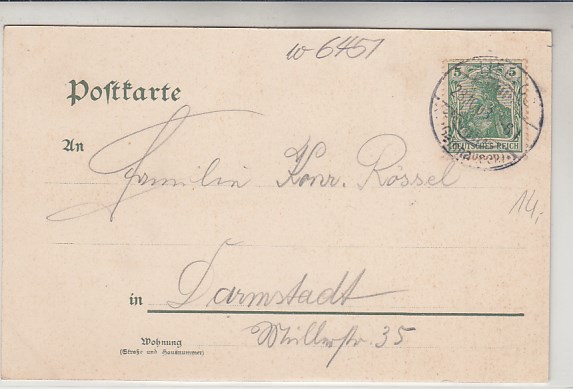 w 6451
5 5
DEUTSCHES REICH
Postkarte
An
Familie Konr. Rössel
14,
in Darmstadt
Wohnung
(Straße und Hausnummer)
Müllerstr. 35